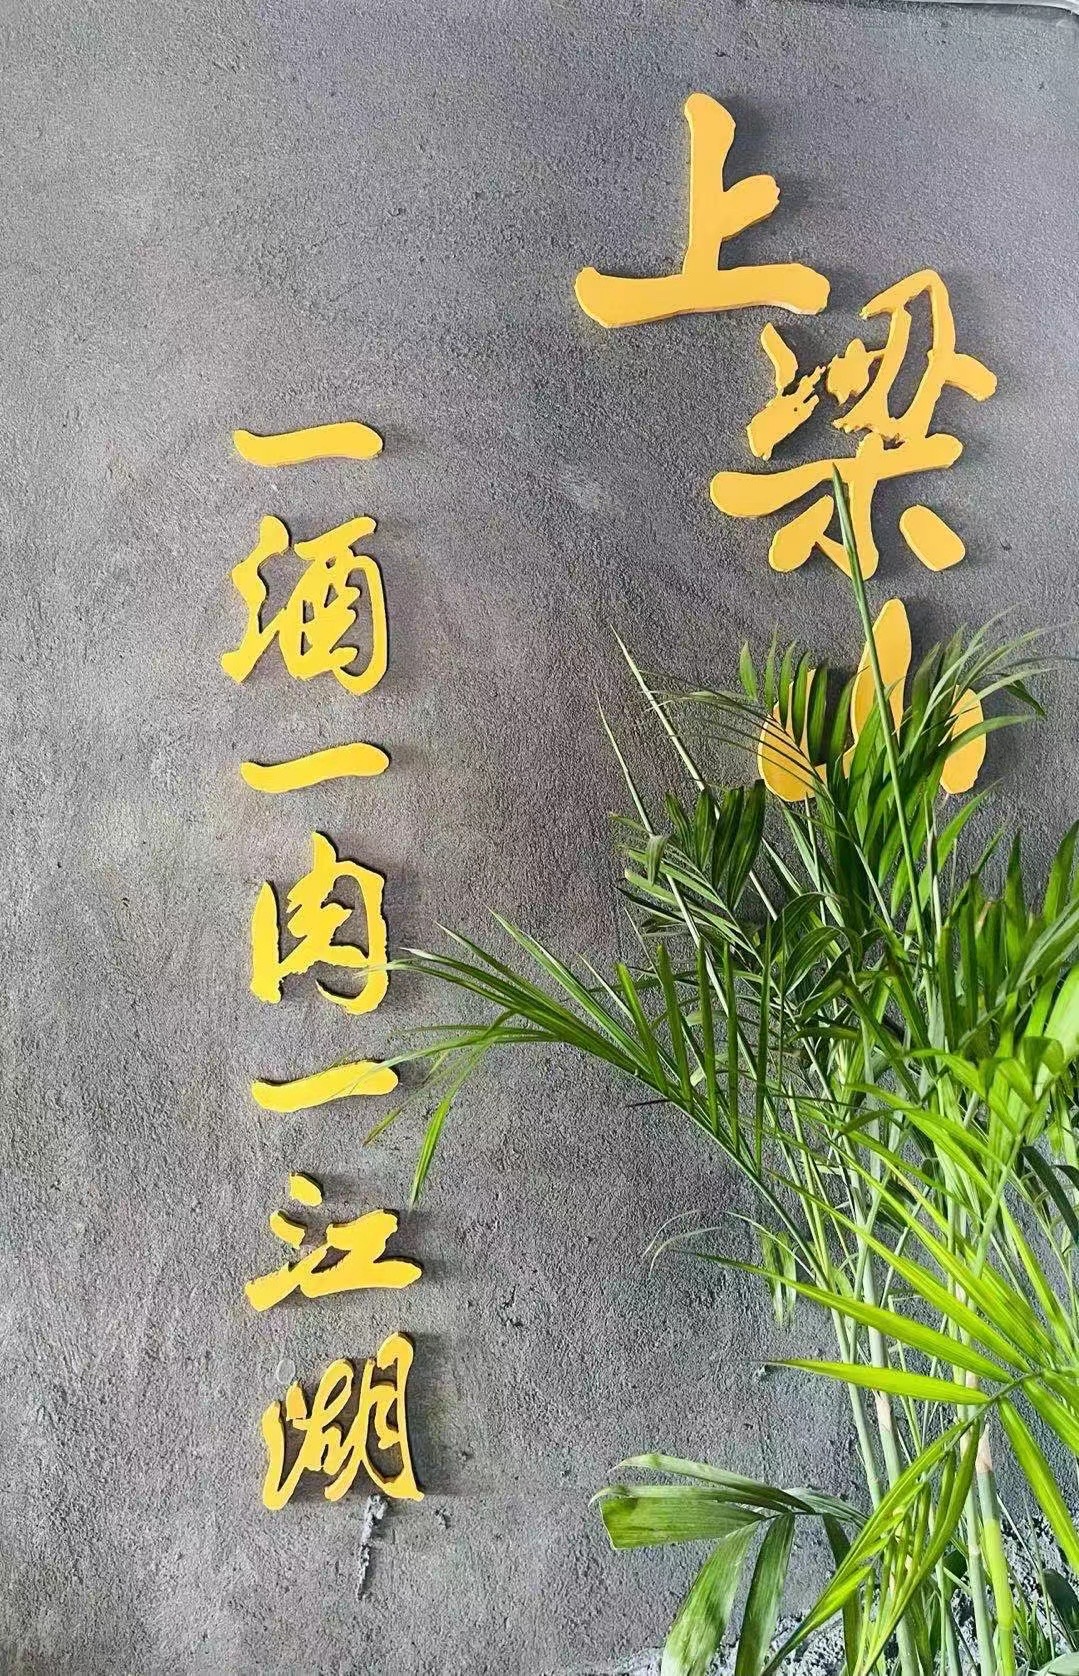 上梁山
一酒一肉一江湖